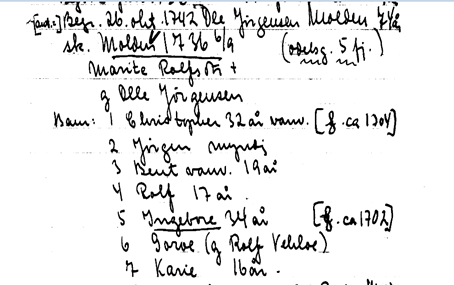 Begr. 26. okt. 1742 Ole Jörgensen Molden 74 år
sk. Molden 1736 6/9 (odelsg. 5 pj.)
Marite Rolfsdtr +
g Olle Jörgensen
Barn: 1 Christopher 32 år vanv. [f. ca 1704]
2 Jörgen myndig
3 Bent vanv. 19 år
4 Rolf 17 år.
5 Ingebore 34 år [f. ca 1702]
6 (g Rolf
7 Karie 16 år.